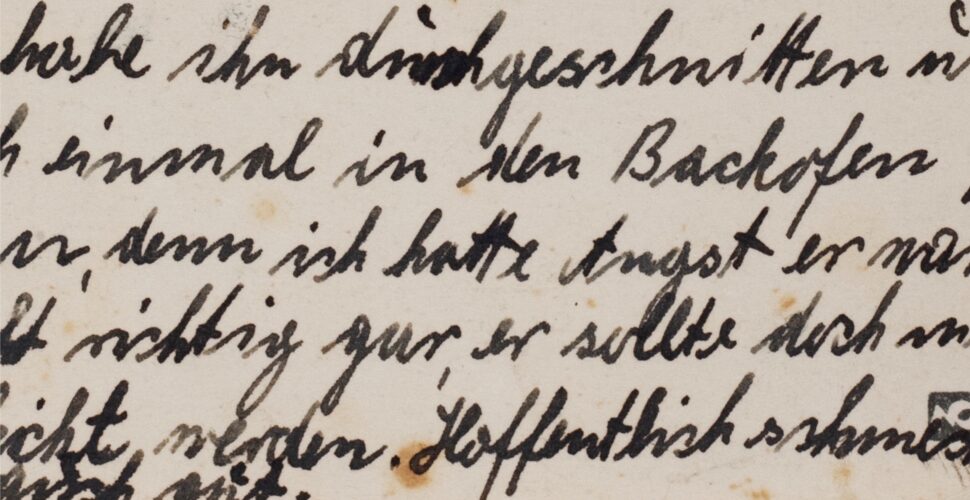 habe ihn durchgeschnitten u
h einmal in den Backofen
n, denn ich hatte Angst er wär
lt richtig gar, er sollte doch
icht werden. Hoffentlich schmec
auch gut.